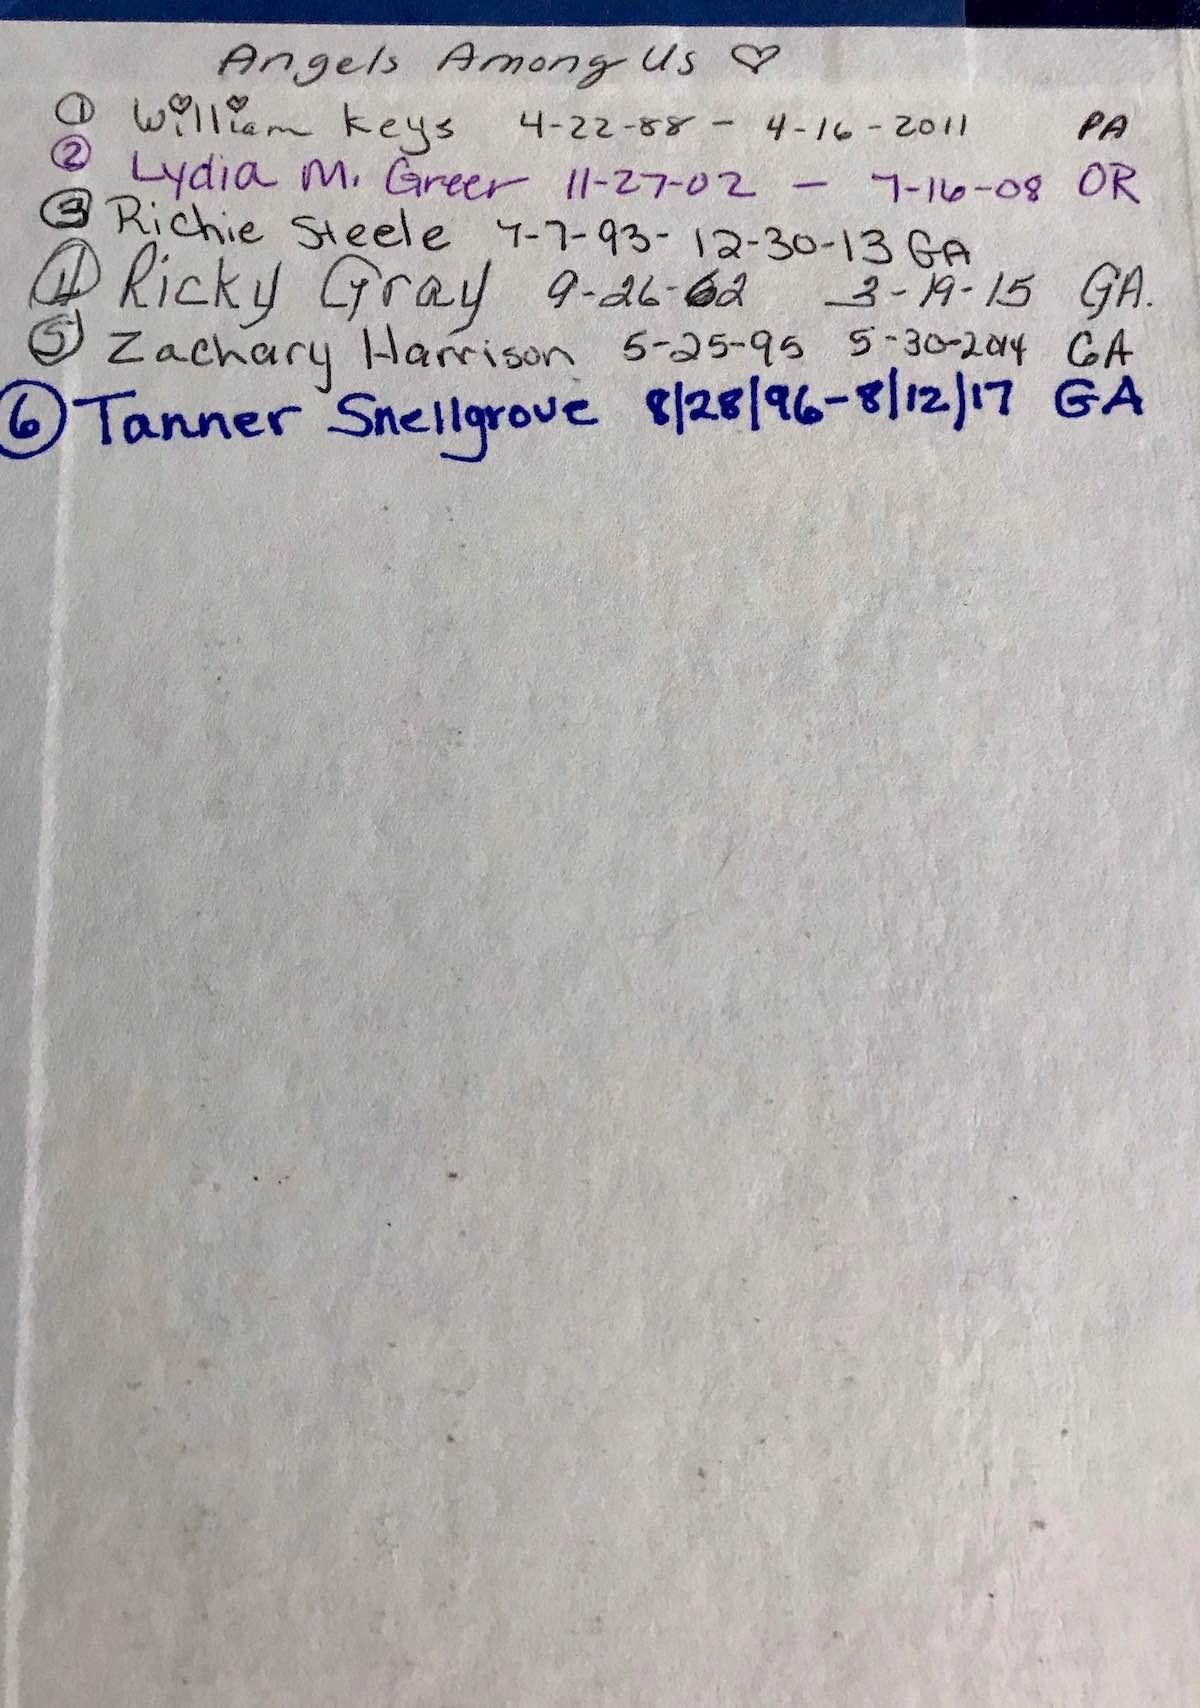 Angels Among Us ♡
① William Keys 4-22-88 - 4-16-2011 PA
② Lydia M. Greer 11-27-02 - 7-16-08 OR
③ Richie Steele 4-7-93- 12-30-13 GA
④ Ricky Gray 9-26-62 3-19-15 GA.
⑤ Zachary Harrison 5-25-95 5-30-2014 GA
⑥ Tanner Snellgrove 8/28/96-8/12/17 GA